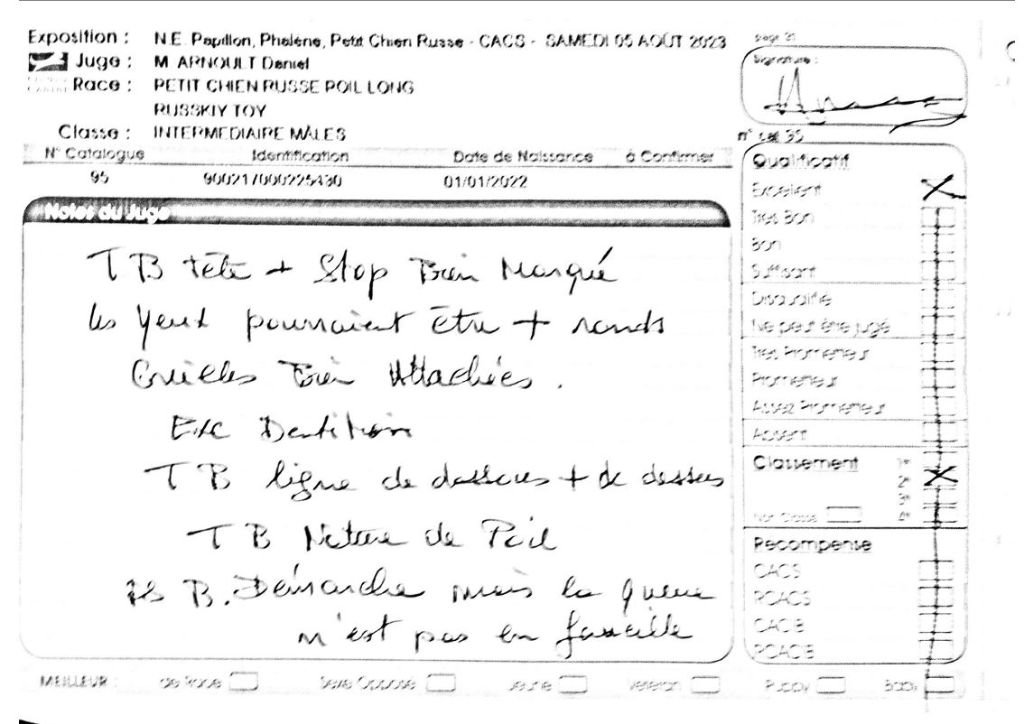 Exposition : N.E. Papillon, Phalène, Petit Chien Russe - CACS - SAMEDI 05 AOÛT 2023
Juge : M ARNOULT Daniel
Race : PETIT CHIEN RUSSE POIL LONG
RUSSKIY TOY
Classe : INTERMEDIAIRE MÂLES
N° Catalogue Identification Date de Naissance à Confirmer
95 900217000225430 01/01/2022
Notes du Juge
TB tête + Stop Bien Marqué
les Yeux pourraient être + ronds
Oreilles Bien Attachées.
Exc Dentition
TB ligne de dessous + de dessus
TB Nature de Poil
B. Démarche mais la queue
n'est pas en faucille
Signature :
Qualificatif
Excellent
Très Bon
Bon
Suffisant
Disqualifié
Ne peut être jugé
Très Prometteur
Prometteur
Assez Prometteur
Absent
Classement 1er
2e
3e
Non Classé 4e
Récompense
CACS
RCACS
CACIB
RCACIB
MEILLEUR : de Race Sexe Opposé Jeune Vétéran Puppy Baby